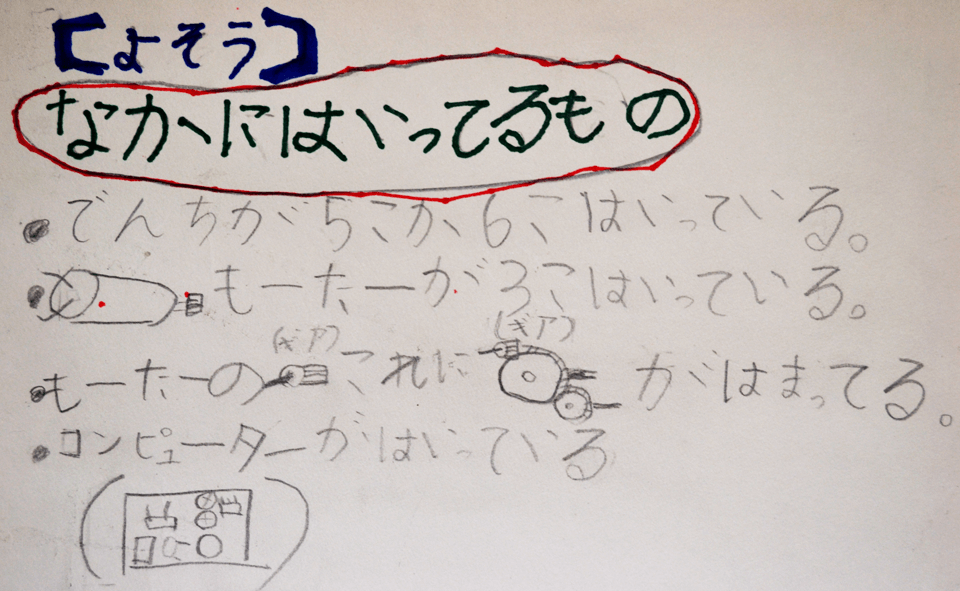 【よそう】
なかにはいってるもの
・でんちが5こか6こはいっている。
・もーたーが3こはいっている。
(ギア) (ギア)
・もーたーの これに がはまってる。
・コンピューターがはいっている